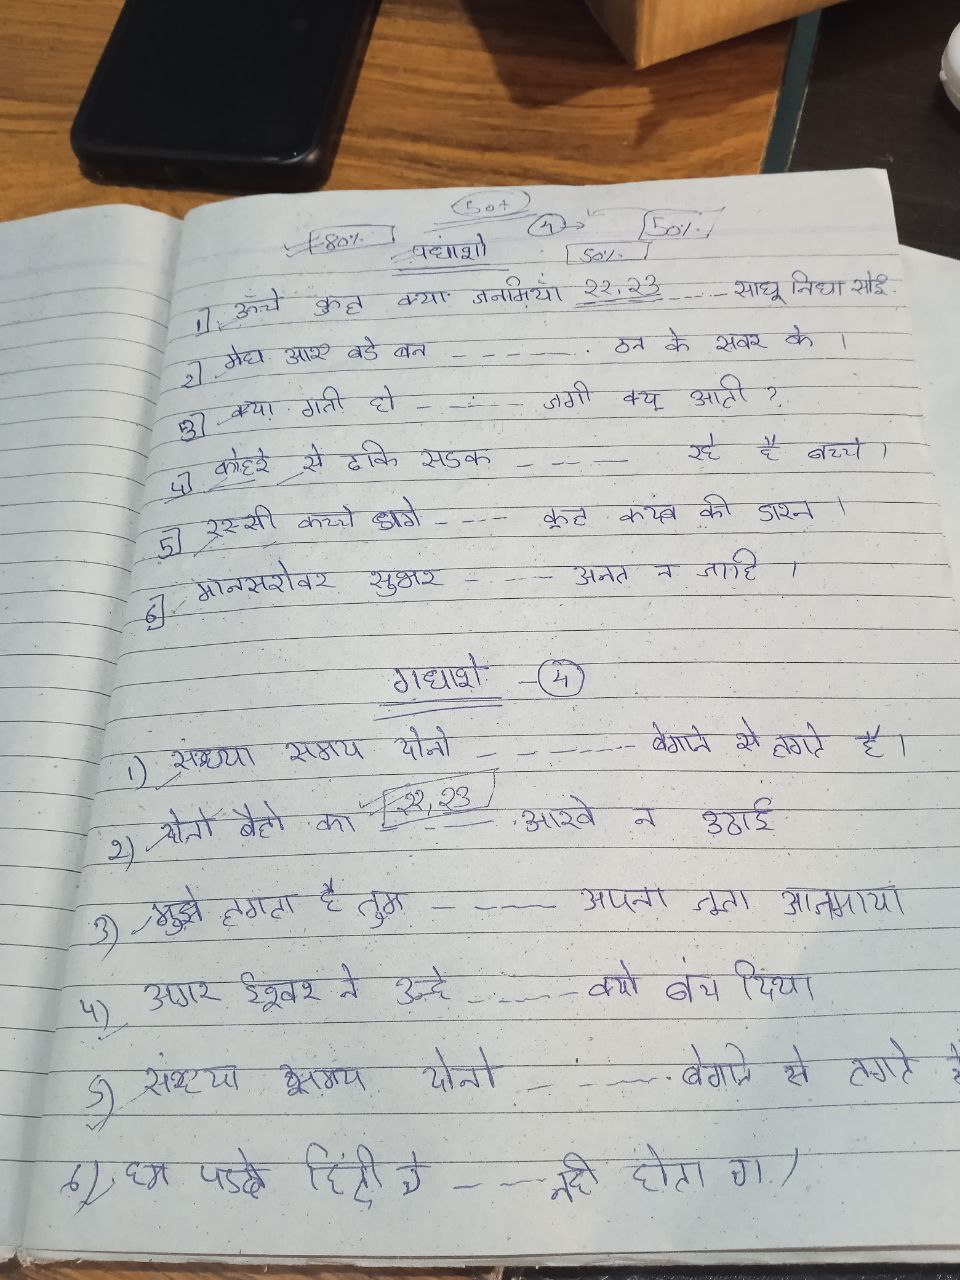 50+
80% 4 → 50%
पद्याशो 50%
1] ऊँचे कुल क्या जनमिया 22,23 ---- साधू निधा सोई.
2] मेघ आए बडे बन - - - - - - . ठन के सवर के ।
3] क्या गाती हो - - - - - जगी क्यू आती ?
4] कोहरे से ढकि सडक - - - - रहे है बच्चे ।
5] रस्सी कच्चे डागे - - - - कूल कदंब की डारन ।
6] मानसरोवर सुभर - - - - अनत न जाहि ।
गद्याशो - 4
1) संध्या समय दोनो - - - - - - बेगाने से लगते है ।
2) दोनो बैलो का 22,23 - - - आखे न उठाई
3) मुझे लगता है तुम - - - - - अपना जूता आजमाया
4) अगर ईश्वर ने उन्हे - - - - - क्यो बंच दिया
5) संध्या समय दोनो - - - - - बेगाने से लगते है
6) हम पडदे हिंदी मे - - - - नही होता था ।